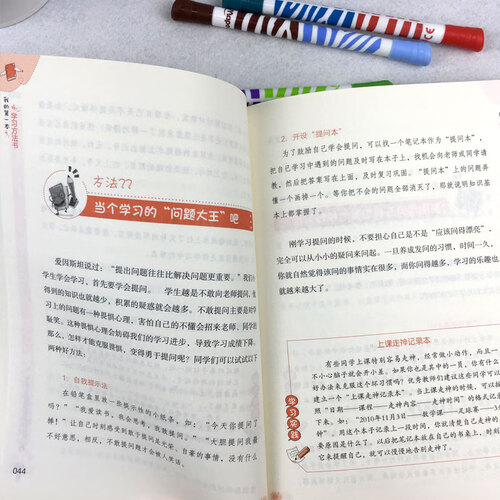 我的第一本
学习方法书
方法22
当个学习的“问题大王”吧
爱因斯坦说过：“提出问题往往比解决问题更重要。”我们
学生学会学习，首先要学会提问。 学生越是不敢向老师提问，他
得到的知识也就越少，积累的疑惑就会越多。不敢提问主要是对学
习上的问题有种畏惧心理，害怕自己的不懂会招来老师、同学的
耻笑。这种畏惧心理会妨碍我们的学习进步，导致学习成绩下降。
那么，怎样才能克服畏惧，变得勇于提问呢？同学们可以试试以下
两种好方法：
1. 自我提示法
在铅笔盒里放一些提示性的小纸条，如：“今天你提问了
吗？”“我爱读书，我会思考，我敢提问。”“大胆提问我最
棒！”让自己时刻感受到敢于提问是光荣、自豪的事情，没有什么
不好意思，相反，不敢提问题才会被人笑话。
044
2. 开设“提问本”
为了鼓励自己学会提问，可以找一个笔记本作为“提问本”，
把自己学习中遇到的问题及时写在本子上，找机会向老师或同学请
教，然后把答案写在上面，及时复习巩固。“提问本”上的问题弄
懂一个画掉一个。等你把不会的问题全部消灭了，那就说明知识基
本上都掌握了。
刚学习提问的时候，不要担心自己是不是“应该问得漂亮”，
完全可以从小小的疑问来问起。一旦养成发问的习惯，时间一久，
你就自然觉得该问的事情实在很多，而你问得越多，学习的乐趣也
就越来越大了。
学习贴士
上课走神记录本
有些同学上课特别容易走神，经常做小动作，而且一
不小心脑子就会开小差。如果你也是其中的一员，你有什么
好办法来克服这个坏习惯吗？优秀教师们建议这些同学可以
建立一个“上课走神记录本”。当上课走神的时候，可以按
照“日期——课程——走神内容——走神时间”的格式记录
下来。如，“2010年11月3日——数学课——足球赛——
钟”。用这个本子记录上一段时间，你就清楚自己走神的主
要原因是什么了。以后把笔记本放在自己的书桌上，时刻提
它来提醒自己，就可以慢慢地告别走神了。